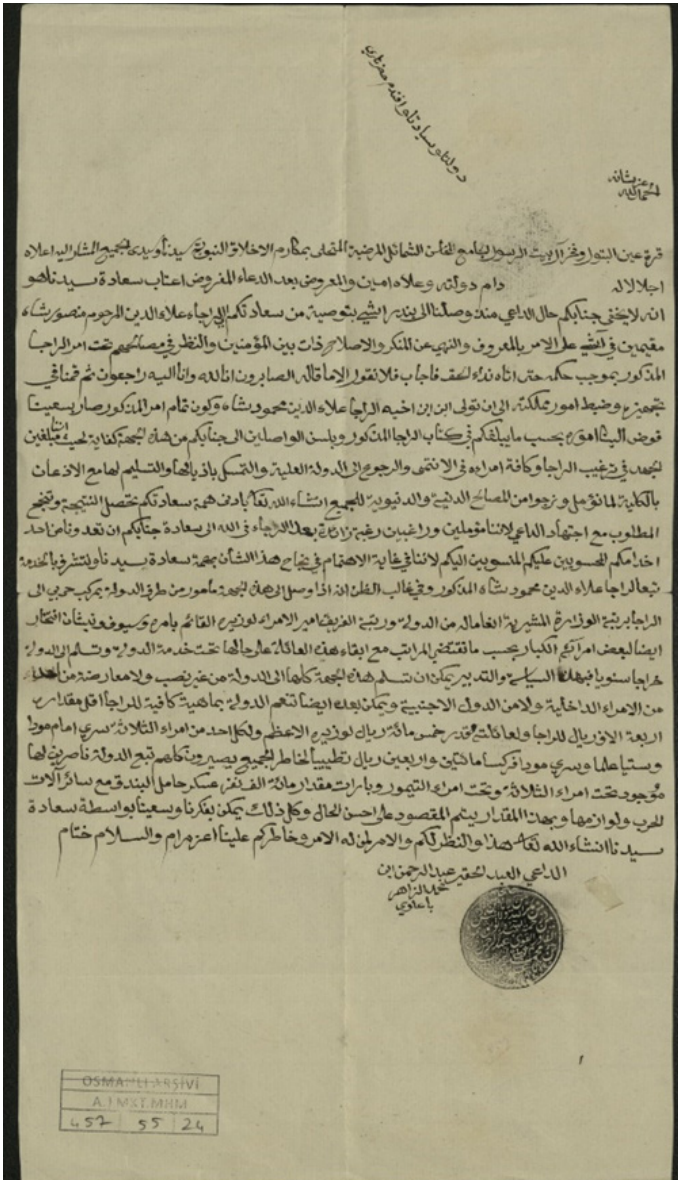 دولتلو سيادتلو افندم حضرتلري
الحمد لله
عز شانه
قرة عين البتول وفخر آل بيت الرسول الجامع المحاسن الشمائل المرضية المتحلى بمكارم الاخلاق النبوية سيدنا وسيدى الجميع المشار اليه اعلاه
اجلالا له دام دولته وعلاه امين والمعروض بعد الدعاء المفروض اعتاب سعادة سيدنا هو
انه لا يخفى جنابكم حال الداعي منذ وصلنا الى بندر اشي بتوصية من سعادتكم الى الراجا علاء الدين المرحوم منصور شاه
مقيمين في اشي على الامر بالمعروف والنهي عن المنكر والاصلاح ذات بين المؤمنين والنظر في مصالحهم تحت امر الراجا
المذكور بموجب حكمه حتى اتاه نداء الحق فاجاب فلا نقول الا ما قاله الصابرون انا لله وانا اليه راجعون ثم قمنا في
تجهيزه وضبط امور مملكته الى ان تولى ابن ابن اخيه الراجا علاء الدين محمود شاه وكون تمام امر المذكور صار بسعينا
فوض الينا اموره بحسب ما يبلغكم في كتاب الراجا المذكور وبلسن الواصلين الى جنابكم من هذه الجهة كفاية لحيث اننا مبلغين
الجهد في ترغيب الراجا وكافة امراءه في الانتمى والرجوع الى الدولة العلية والتمسك باذيالها والتسليم لها مع الاذعان
بالكلية لما نؤمل ونرجوا من المصالح الدينية والدنيوية للجميع انشاء الله تعالى بادنى همة سعادتكم تحصل النتيجة وتنجح
المطلوب مع اجتهاد الداعي لاننا مؤملين وراغبين رغبة زائدة بعد الرجاء في الله الى سعادة جنابكم ان تعدونا من احد
اخدامكم المحسوبين عليكم المنسوبين اليكم لاننا في غاية الاهتمام في نجاح هذا الشأن بهمة سعادة سيدنا ولنتشرف بالخدمة
تبعا لراجا علاء الدين محمود شاه المذكور وفي غالب الظن انه اذا وصل الى هذه الجهة مأمور من طرف الدولة بمركب حربي الى
الراجا برتبة الوزارة المشيرية انعاما له من الدولة ورتبة الفريق امير الامراء لوزيره القائم بامره وسيوف ونيشان افتخار
ايضا لبعض امرآئه الكبار بحسب ما تقتضي المراتب مع ابقاء هذه العائلة على حالها تحت خدمة الدولة وتسلم الى الدولة
خراجا سنويا فبهذه السياسة والتدبير يمكن ان تسلم هذه الجهة كلها الى الدولة من غير نصب ولا معارضة من احد
من الامراء الداخلية ولا من الدول الاجنبية ويمكن بعده ايضا تنعم الدولة بماهية كافية للراجا اقل مقدار
اربعة الاف ريال للراجا ولعائلته وقدر خمس مائة ريال لوزيره الاعظم ولكل احد من امراء الثلاثة سري امام مودا
وستيا علما وسري مودا فركسا مائتين واربعين ريال تطييبا لخاطر الجميع يصيرون كلهم تبع الدولة ناصرين لها
موجود تحت امراء الثلاثة وتحت امراء التيمور وبارات مقدار مائة الف نفر عسكر حامل البندق مع سائر آلات
الحرب ولوازمها وبهذا المقدار يتم المقصود على احسن الحال وكل ذلك يمكن بفكرنا وسعينا بواسطة سعادة
سيدنا انشاء الله تعالى هذا والنظر لكم والامر لمن له الامر وخاطركم علينا اعز مرام والسلام ختام
الداعي العبد الحقير عبد الرحمن ابن
محمد الزاهر
باعلوي
OSMANLI ARŞİVİ
A.} MKT.MHM
457 55 24